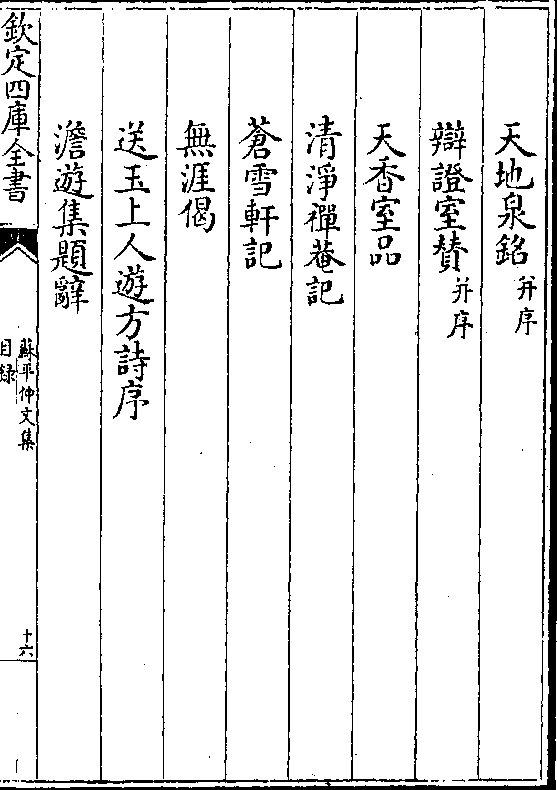 天地泉銘并序
辯證室賛并序
天香室品
清淨禪菴記
蒼雪軒記
無涯偈
送玉上人遊方詩序
澹遊集題辭
欽定四庫全書
蘇平仲文集
目録
十六